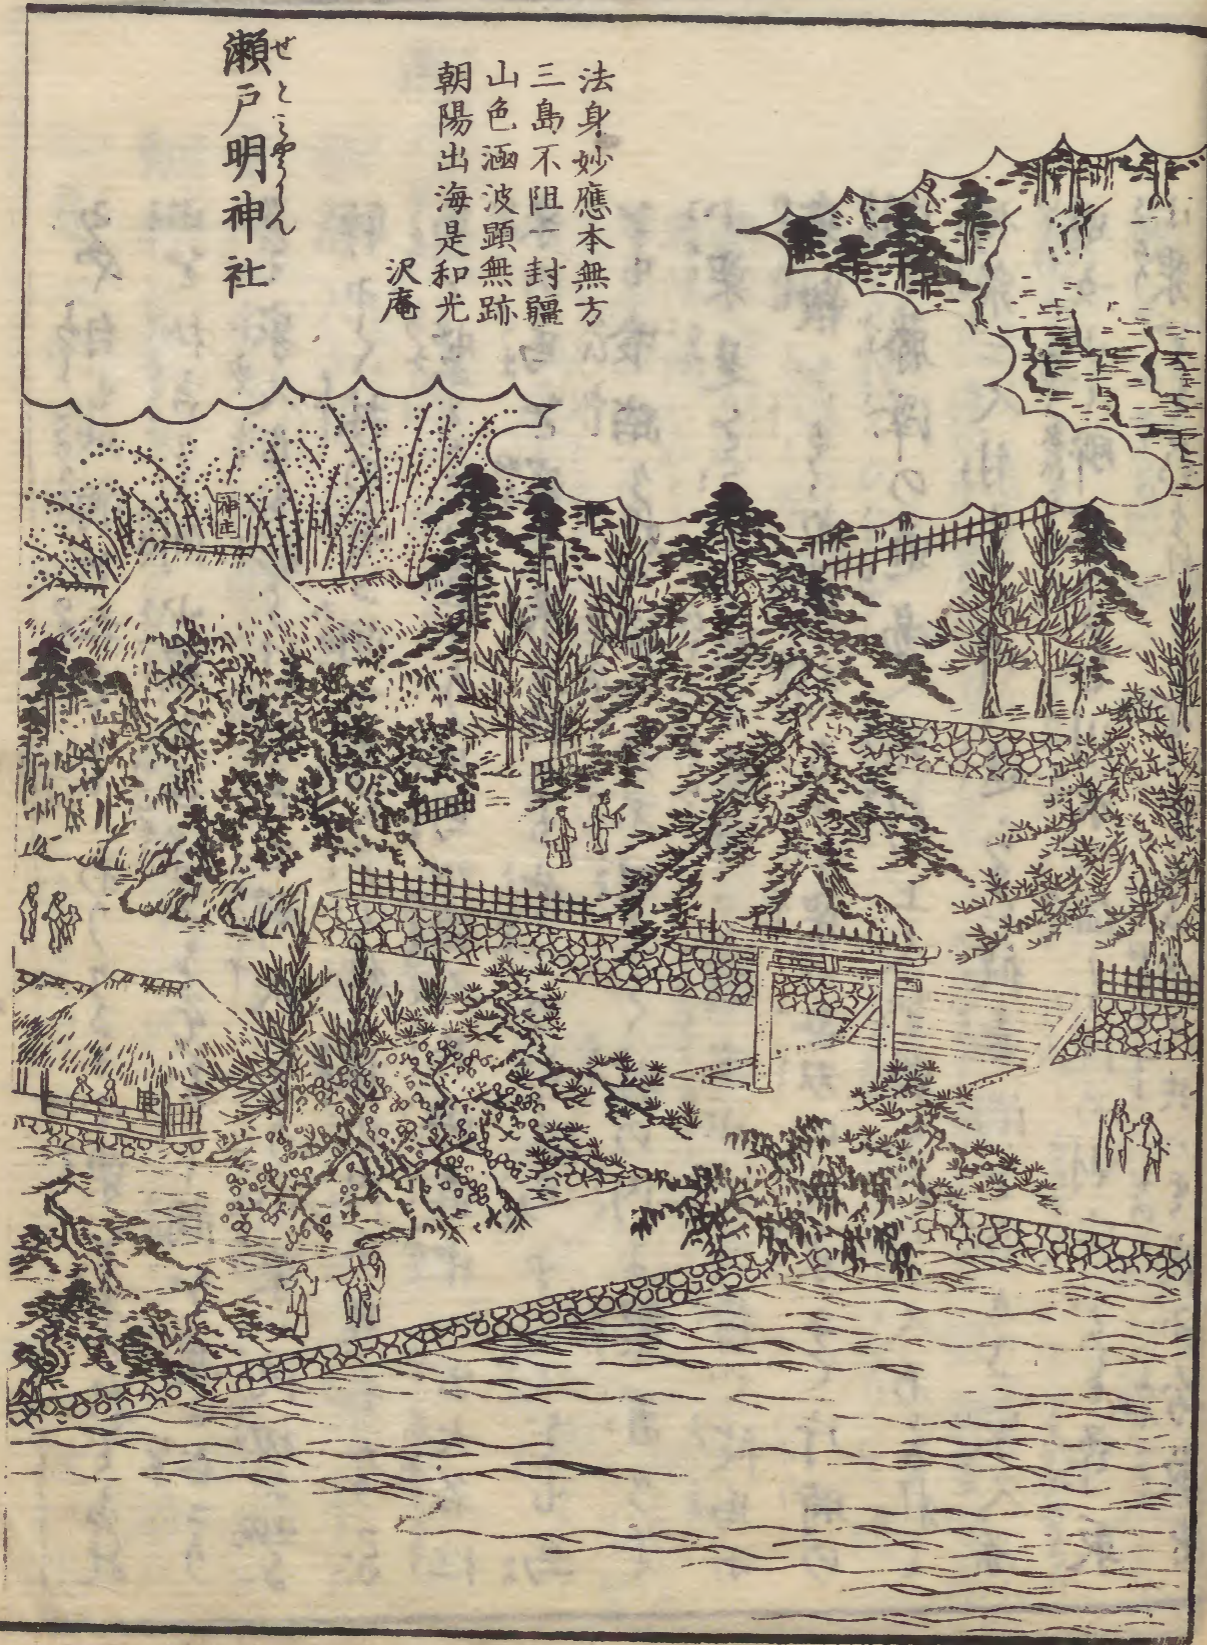 法身妙應本無方
三島不阻一封疆
山色涵波顕無跡
朝陽出海是和光
沢庵
瀬戸明神社
せとみやうじん
神主